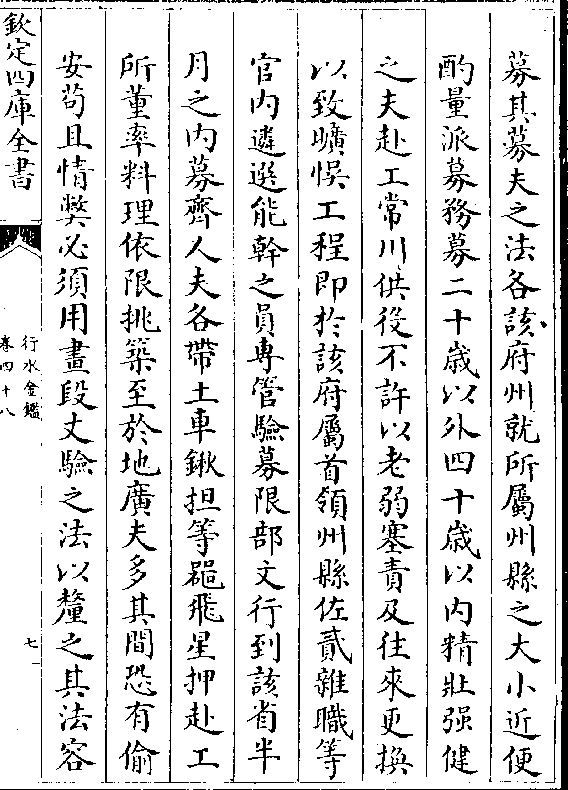 募其募夫之法各該府州就所屬州縣之大小近便
酌量派募務募二十歲以外四十歲以内精壯强健
之夫赴工常川供役不許以老弱塞責及往來更換
以致曠悞工程即於該府屬首領州縣佐貳雜職等
官内遴選能幹之員專管驗募限部文行到該省半
月之内募齊人夫各帶土車鍬担等噐飛星押赴工
所董率料理依限挑築至於地廣夫多其間恐有偷
安苟且情弊必須用畫段丈驗之法以釐之其法容
欽定四庫全書
行水金鑑
卷四十八
七